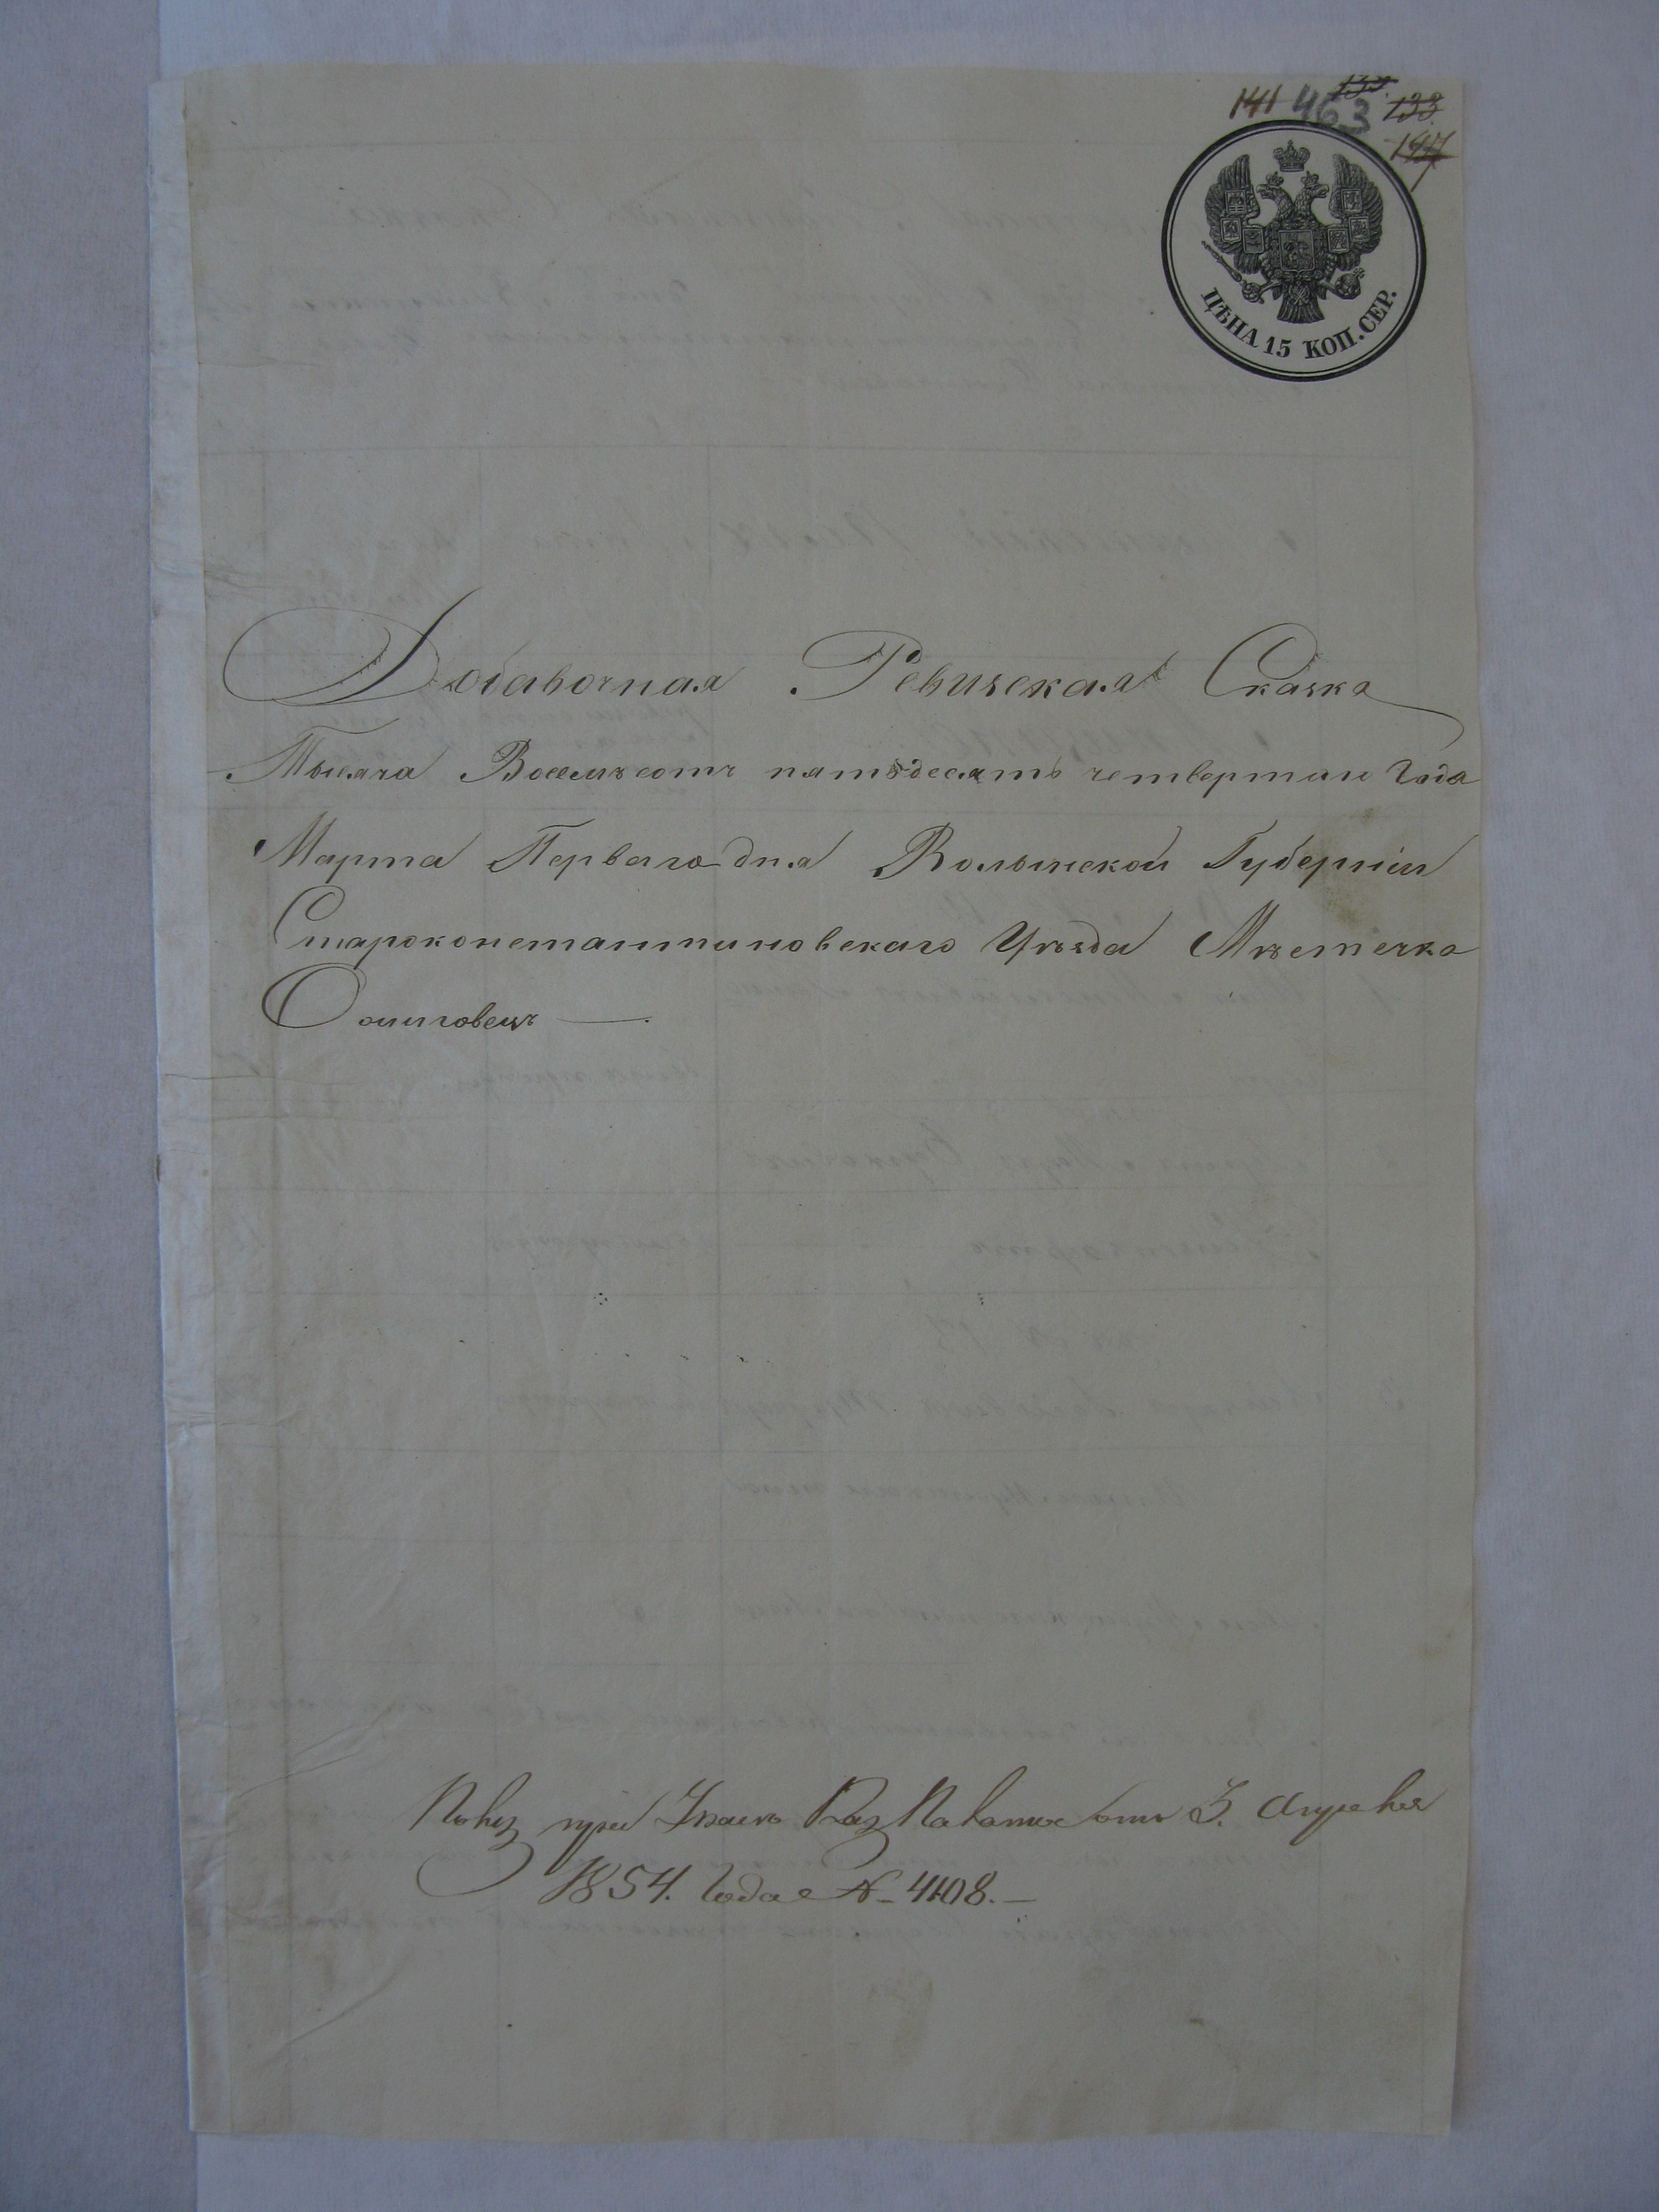 141 463 133. 133.
147
ЦѢНА 15 КОП. СЕР.
Добавочная Ревизская Сказка
Тысяча Восемьсотъ пятьдесятъ четвертаго Года
Марта Перваго дня Волынской Губерніи
Староконстантиновскаго Уѣзда Мѣстечка
при Указѣ Каз Палаты отъ 3. Апреля
1854. Года № 4108.—